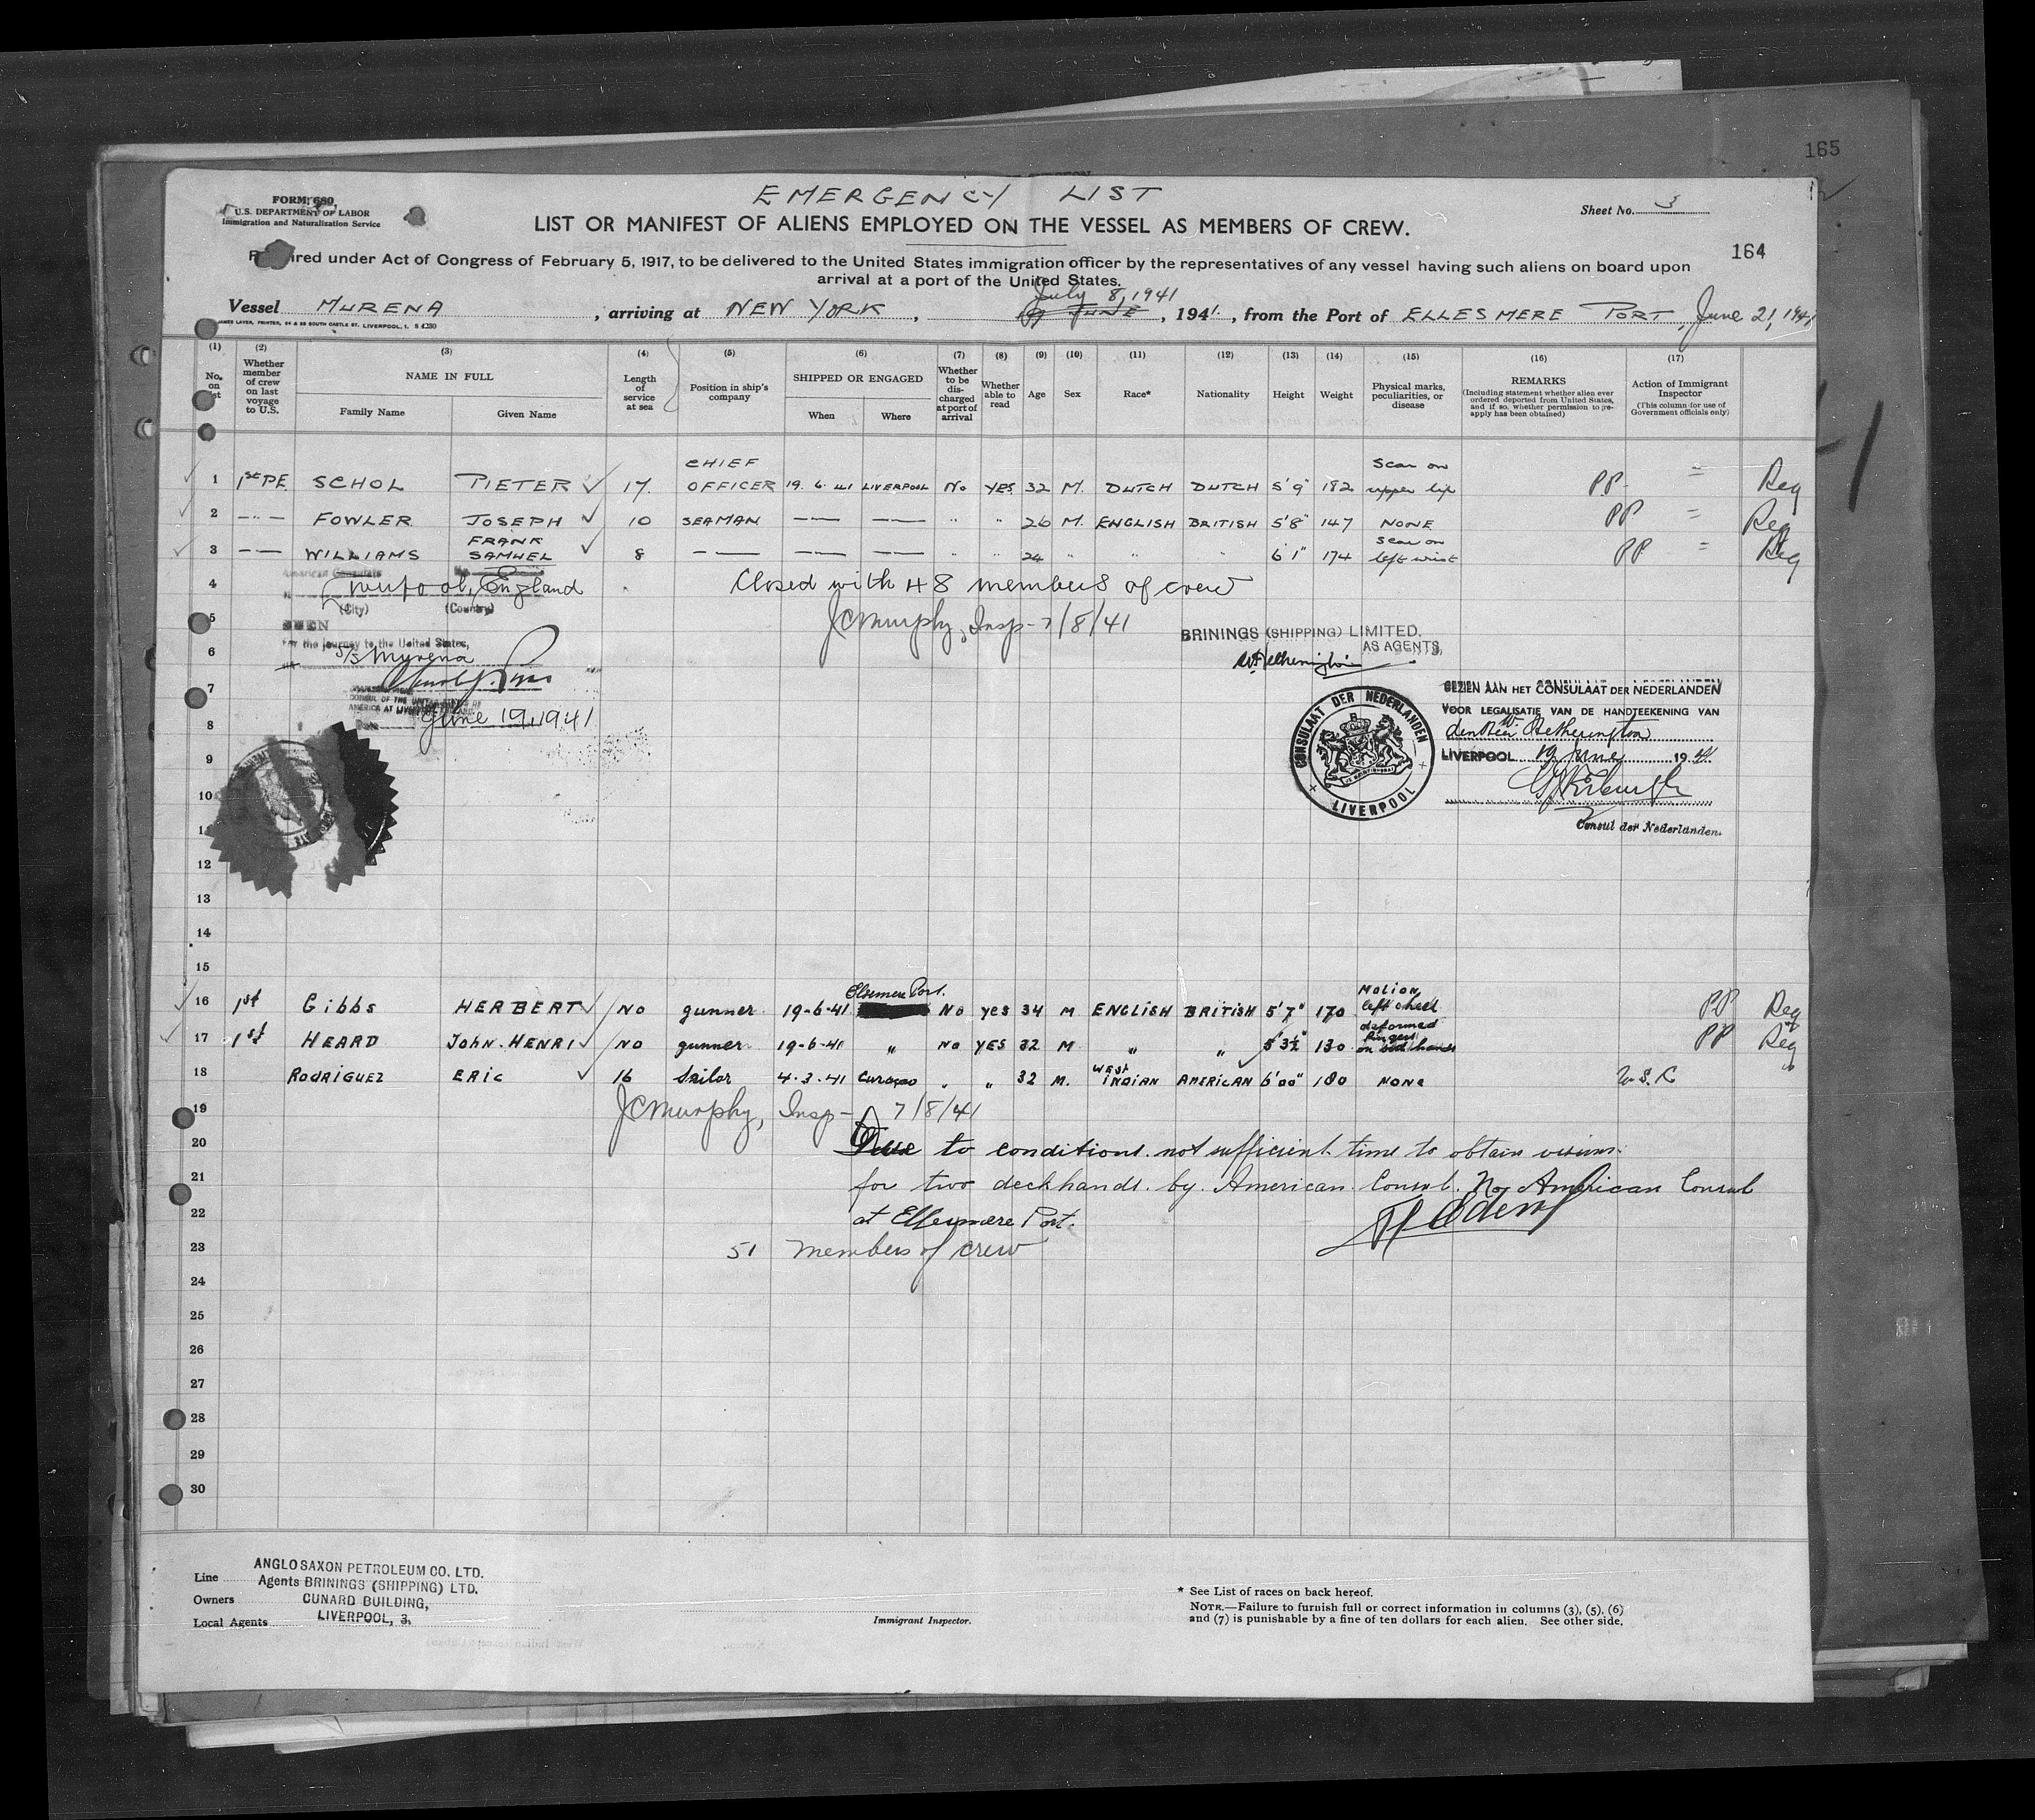 165
EMERGENCY LIST
FORM 680
U.S. DEPARTMENT OF LABOR
Immigration and Naturalization Service
Sheet No. 3
LIST OR MANIFEST OF ALIENS EMPLOYED ON THE VESSEL AS MEMBERS OF CREW.
164
ired under Act of Congress of February 5, 1917, to be delivered to the United States immigration officer by the representatives of any vessel having such aliens on board upon
arrival at a port of the United States.
July 8, 1941
Vessel MURENA, arriving at NEW YORK, JUNE, 1941, from the Port of ELLESMERE PORT, June 21, 1941
JAMES LAVER, PRINTER, 54 & 56 SOUTH CASTLE ST. LIVERPOOL, 1.
(1) (2) (3) (4) (5) (6) (7) (8) (9) (10) (11) (12) (13) (14) (15) (16) (17)
No. on Whether member of crew on last voyage to U.S. NAME IN FULL Family Name Given Name Length of service at sea Position in ship's company SHIPPED OR ENGAGED When Where Whether to be dis-charged at port of arrival Whether able to read Age Sex Race* Nationality Height Weight Physical marks, peculiarities, or disease REMARKS (Including statement whether alien ever ordered deported from United States, and if so, whether permission to re-apply has been obtained) Action of Immigrant Inspector (This column for use of Government officials only)
1 1st PE. SCHOL PIETER 17. CHIEF OFFICER 19.6.41 LIVERPOOL No YES 32 M. DUTCH DUTCH 5'9" 182 Scar on upper lip PP. = Reg
2 -"- FOWLER JOSEPH 10 SEAMAN -"- -"- " " 26 M. ENGLISH BRITISH 5'8" 147 NONE PP = Reg
3 -"- WILLIAMS FRANK SAMUEL 8 -"- -"- -"- " " 24 " " " 6'1" 174 Scar on left wrist PP = Reg
4 Liverpool, England Closed with 48 members of crew
(City) (Country)
5 SEEN JCMurphy, Insp - 7/8/41
For the journey to the United States,
BRININGS (SHIPPING) LIMITED.
AS AGENTS.
6 S/S Murena
WHetherington
7
CONSUL OF THE UNITED STATES OF
AMERICA AT LIVERPOOL, ENGLAND.
8 Date June 19, 1941
GEZIEN AAN HET CONSULAAT DER NEDERLANDEN
VOOR LEGALISATIE VAN DE HANDTEEKENING VAN
den Heer W. Hetherington
LIVERPOOL 19 June 1941
Consul der Nederlanden.
CONSULAAT DER NEDERLANDEN
LIVERPOOL
9
10
11
12
13
14
15
16 1st Gibbs HERBERT NO gunner 19-6-41 Elsemere Port. No yes 34 M ENGLISH BRITISH 5'7" 170 left cheek PP Reg
17 1st HEARD JOHN.HENRI NO gunner 19-6-41 " No YES 32 M " " 5'3½" 130 deformed fingers on both hands PP Reg
18 RODRIGUEZ ERIC 16 Sailor 4.3.41 Curaçao " " 32 M. WEST INDIAN AMERICAN 6'00" 180 NONE
19 JCMurphy, Insp - 7/8/41
20 Due to conditions not sufficient time to obtain
21 for two deckhands by American Consul. No American Consul
22 at Ellesmere Port.
23 51 members of crew
24
25
26
27
28
29
30
Line ANGLO SAXON PETROLEUM CO. LTD.
Agents BRININGS (SHIPPING) LTD.
Owners CUNARD BUILDING,
Local Agents LIVERPOOL, 3.
Immigrant Inspector.
* See List of races on back hereof.
NOTE.—Failure to furnish full or correct information in columns (3), (5), (6)
and (7) is punishable by a fine of ten dollars for each alien. See other side.